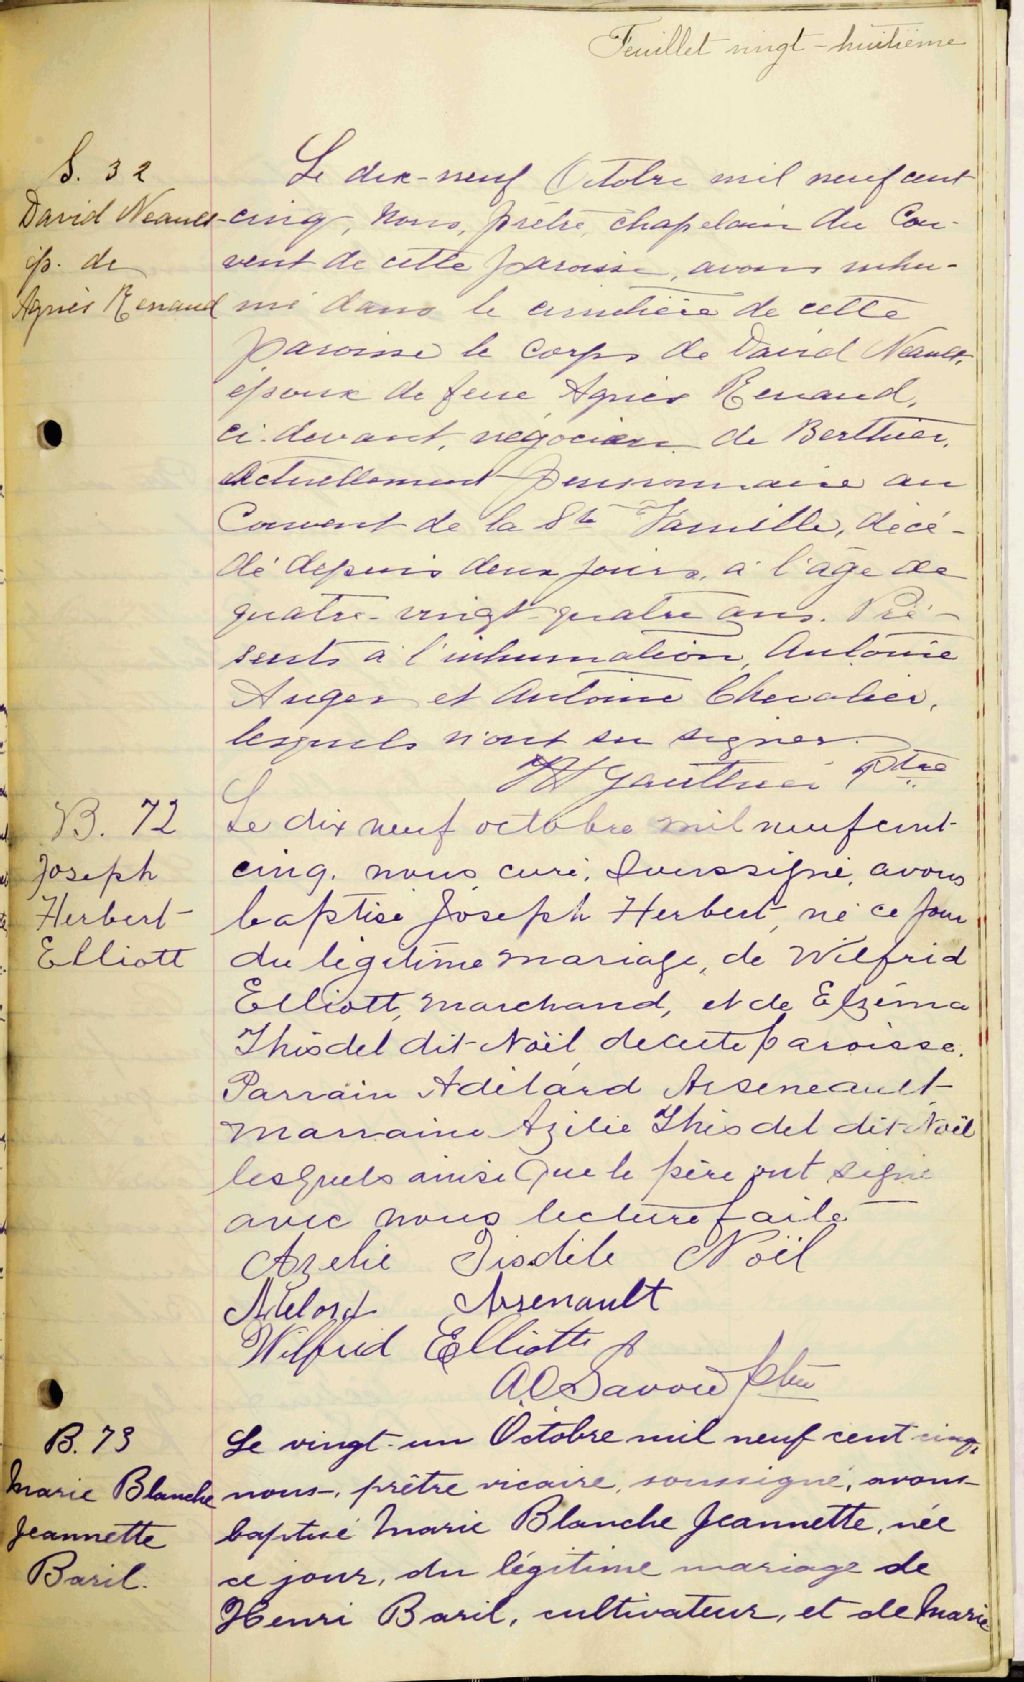 Feuillet vingt-huitième
S. 32
David Neault
ép. de
Agnès Renaud
Le dix-neuf Octobre mil neuf cent
cinq, Nous, prêtre, chapelain du Cou-
vent de cette paroisse, avons inhu-
mé dans le cimetière de cette
paroisse le corps de David Neault,
époux de feue Agnès Renaud,
ci-devant, négociant de Berthier,
Actuellement pensionnaire au
Couvent de la Ste Famille, décé-
dé depuis deux jours, à l'âge de
quatre-vingt-quatre ans. Pré-
sents à l'inhumation, Antoine
Auger et Antoine Chevalier,
lesquels n'ont su signer.
Gauthier Ptre
B. 72
Joseph
Herbert
Elliott
Le dix neuf octobre mil neuf cent
cinq, nous curé, Soussigné, avons
baptisé Joseph Herbert, né ce jour
du légitime mariage, de Wilfrid
Elliott, marchand, et de Elzéma
Thisdel dit Noël de cette paroisse.
Parrain Adélard Arseneault
marraine Azilie Thisdel dit Noël
lesquels ainsi que le père ont signé
avec nous lecture faite
Azelie Tisdile Noël
Adelard Arsenault
Wilfrid Elliott
A. O. Savoie Ptre
B. 73
Marie Blanche
Jeannette
Baril.
Le vingt-un Octobre mil neuf cent cinq,
nous, prêtre vicaire, soussigné, avons
baptisé Marie Blanche Jeannette, née
ce jour, du légitime mariage de
Henri Baril, cultivateur, et de Marie